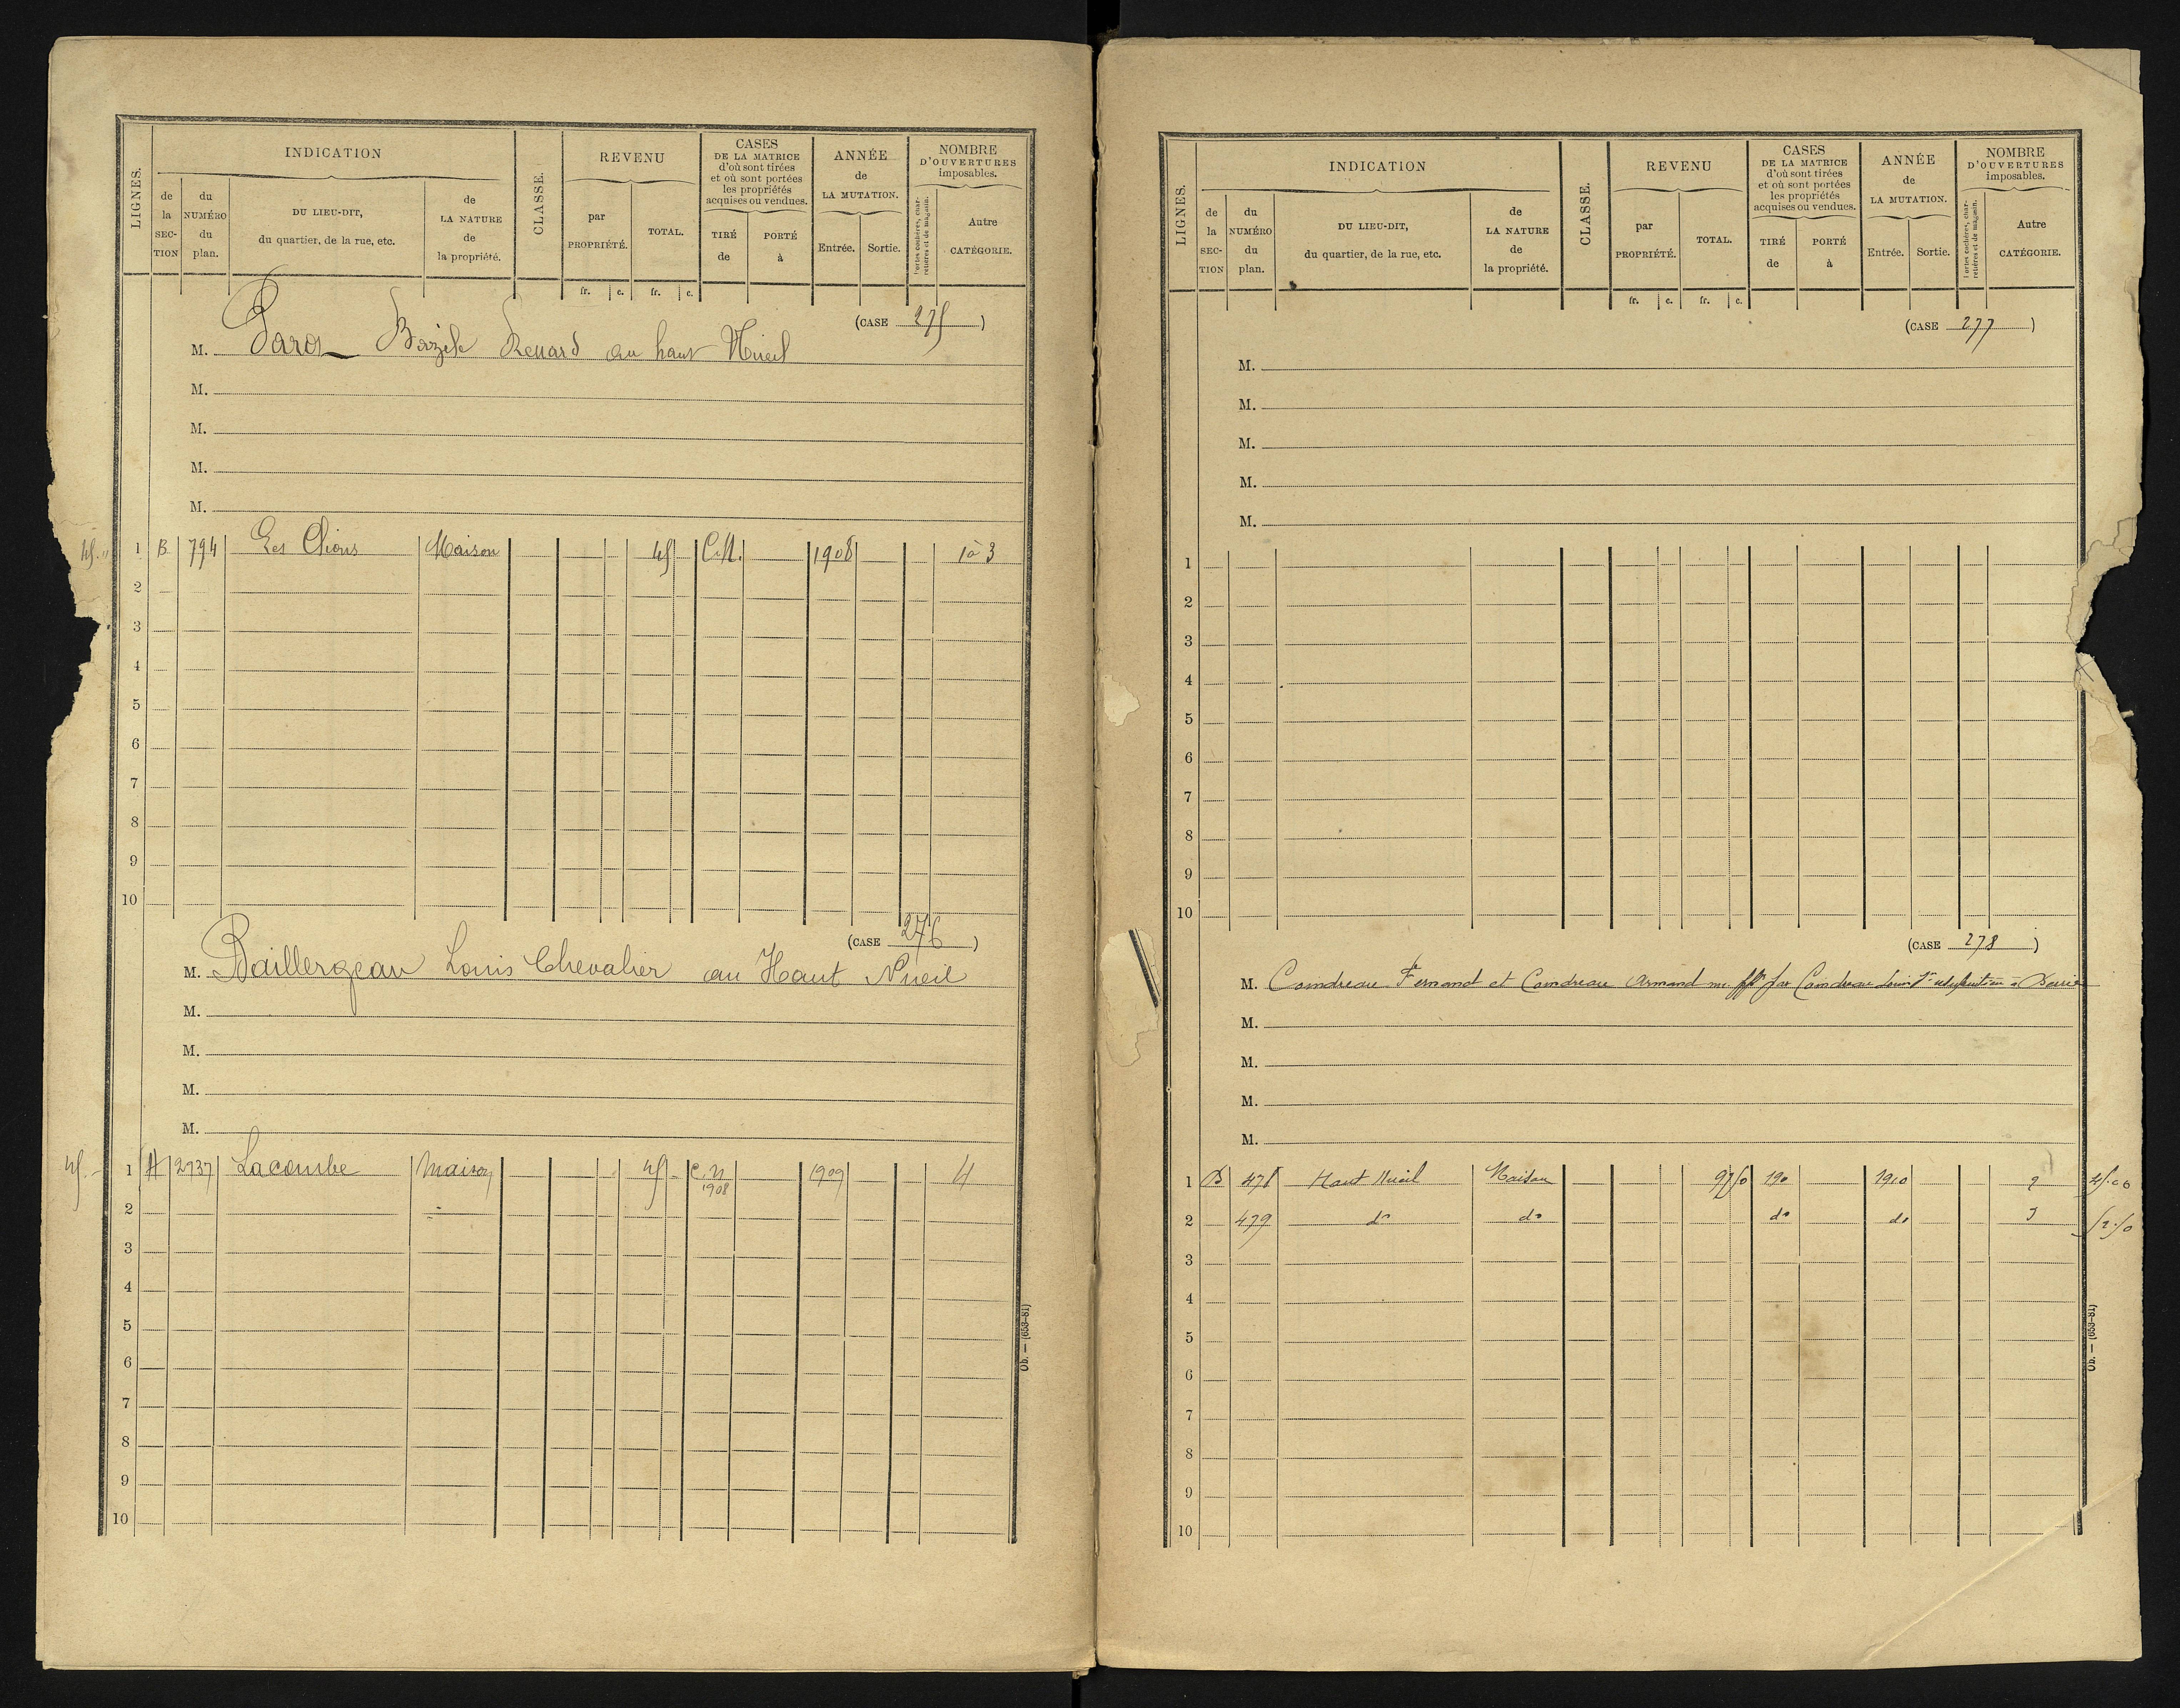 LIGNES.
INDICATION
de la SECTION
du NUMÉRO du plan.
DU LIEU-DIT, du quartier, de la rue, etc.
de LA NATURE de la propriété.
CLASSE.
REVENU
par PROPRIÉTÉ.
TOTAL.
CASES DE LA MATRICE d'où sont tirées et où sont portées les propriétés acquises ou vendues.
TIRÉ de
PORTÉ à
ANNÉE de LA MUTATION.
Entrée.
Sortie.
NOMBRE D'OUVERTURES imposables.
Portes cochères, charretières et de magasin.
Autre CATÉGORIE.
fr. c. fr. c.
(CASE 275)
M. Bazile Renard au haut Nueil
M.
M.
M.
M.
45 "
1 B 794 Les Maison 45 C.N. 1908 3
2
3
4
5
6
7
8
9
10
(CASE 276)
M. Baillergeau Louis Chevalier au Haut Nueil
M.
M.
M.
M.
45 -
1 A 2737 Lacombe Maison 45 - C.N 1908 1909 4
2
3
4
5
6
7
8
9
10
Ob. — (653-81)
LIGNES.
INDICATION
de la SECTION
du NUMÉRO du plan.
DU LIEU-DIT, du quartier, de la rue, etc.
de LA NATURE de la propriété.
CLASSE.
REVENU
par PROPRIÉTÉ.
TOTAL.
CASES DE LA MATRICE d'où sont tirées et où sont portées les propriétés acquises ou vendues.
TIRÉ de
PORTÉ à
ANNÉE de LA MUTATION.
Entrée.
Sortie.
NOMBRE D'OUVERTURES imposables.
Portes cochères, charretières et de magasin.
Autre CATÉGORIE.
fr. c. fr. c.
(CASE 277)
M.
M.
M.
M.
M.
1
2
3
4
5
6
7
8
9
10
(CASE 278)
M. Coindreau Fernand et Coindreau Armand par Coindreau Louis à
M.
M.
M.
M.
1 B 478 Haut Nueil Maison 97 50 190 1910 45.00
2 479 do do do do 3 52.50
3
4
5
6
7
8
9
10
Ob. — (653-81)